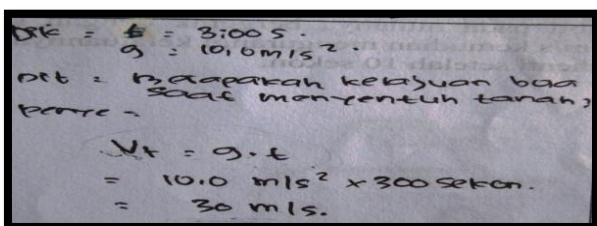 Dik = t = 3,00 s.
g = 10,0 m/s².
Dit = Berapakah kelajuan bola
saat menyentuh tanah?
penye =
Vt = g.t
= 10.0 m/s² x 300 sekon.
= 30 m/s.